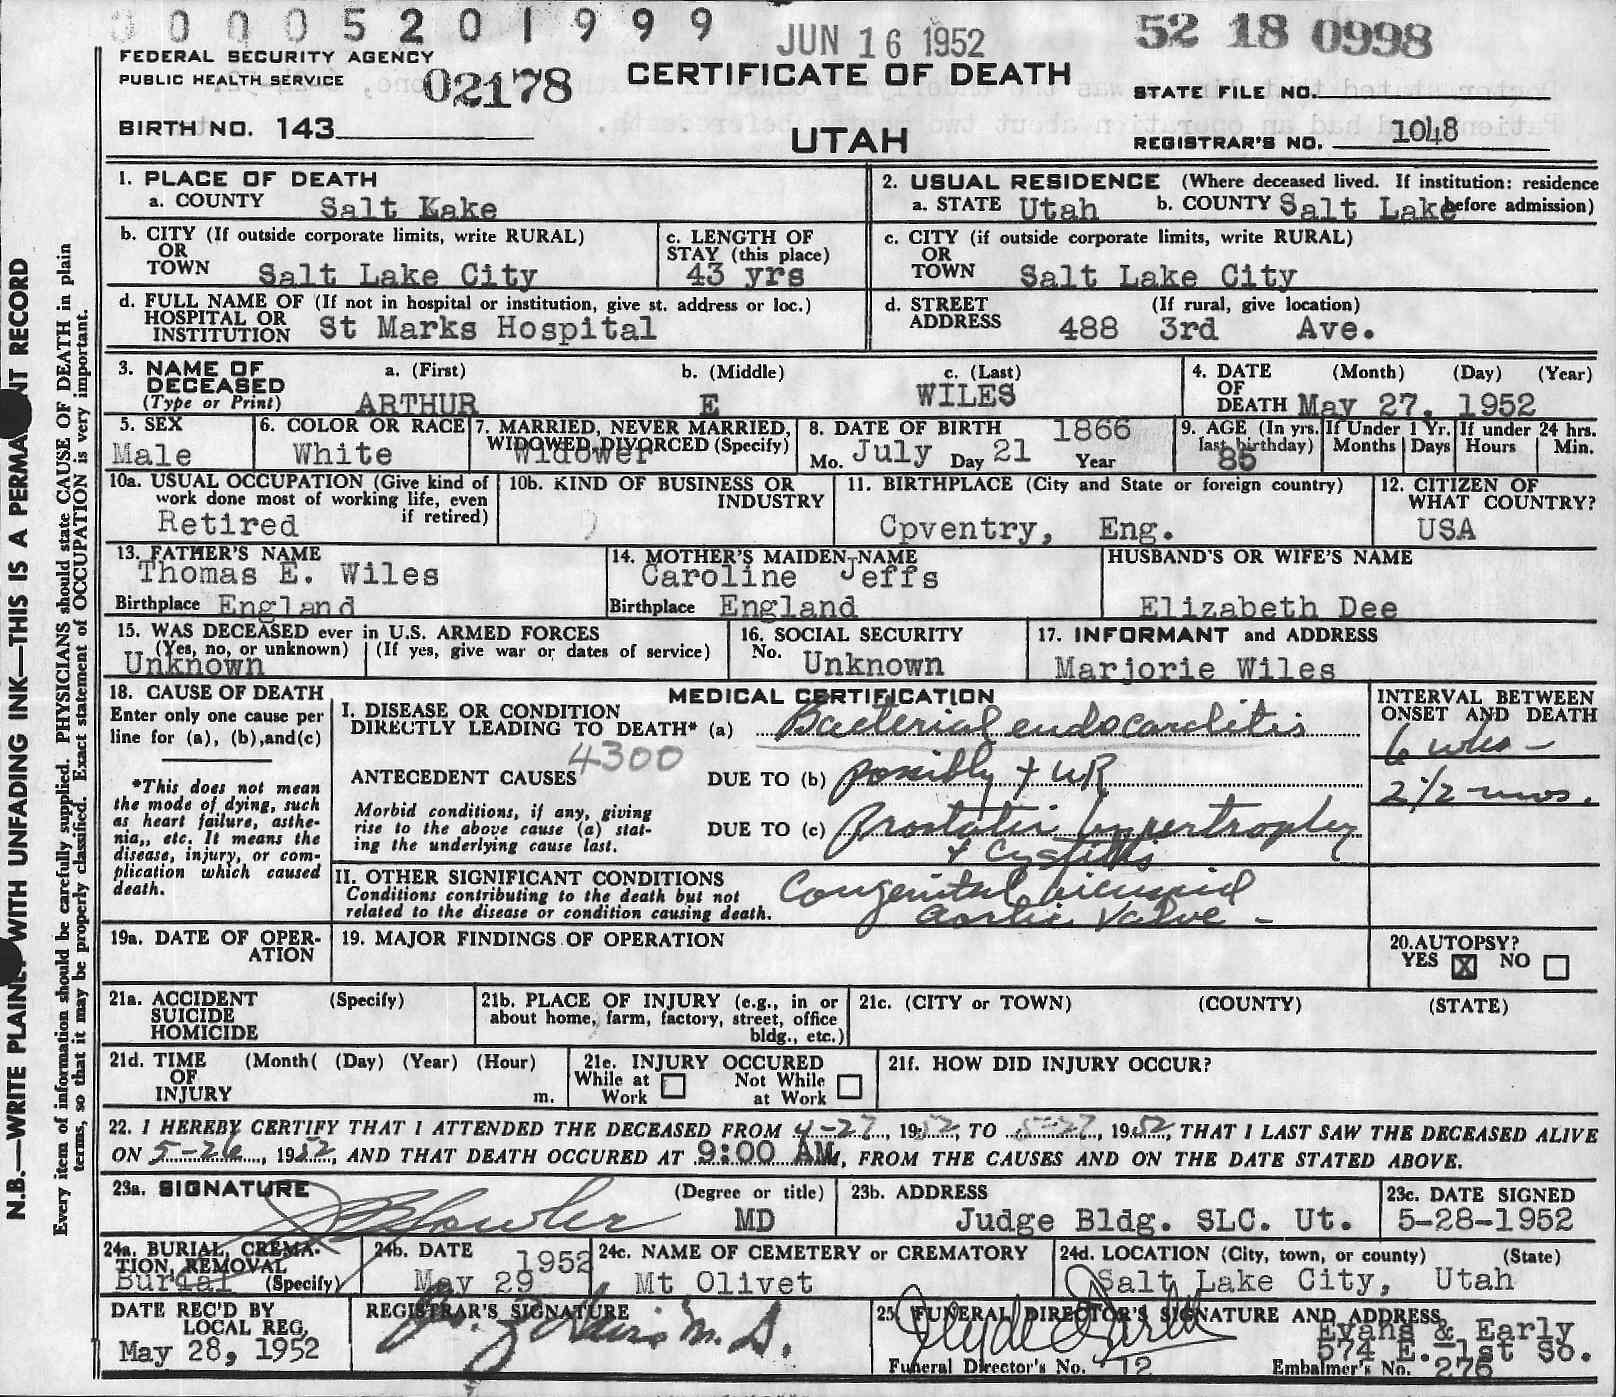 00005201999
JUN 16 1952
52 18 0998
FEDERAL SECURITY AGENCY
PUBLIC HEALTH SERVICE
02178
CERTIFICATE OF DEATH
STATE FILE NO.
BIRTH NO. 143
UTAH
REGISTRAR'S NO. 1048
1. PLACE OF DEATH
a. COUNTY Salt Kake
2. USUAL RESIDENCE (Where deceased lived. If institution: residence before admission)
a. STATE Utah b. COUNTY Salt Lake
b. CITY (If outside corporate limits, write RURAL)
OR
TOWN Salt Lake City
c. LENGTH OF
STAY (this place)
43 yrs
c. CITY (if outside corporate limits, write RURAL)
OR
TOWN Salt Lake City
d. FULL NAME OF (If not in hospital or institution, give st. address or loc.)
HOSPITAL OR
INSTITUTION St Marks Hospital
d. STREET (If rural, give location)
ADDRESS 488 3rd Ave.
3. NAME OF
DECEASED
(Type or Print)
a. (First) b. (Middle) c. (Last)
ARTHUR E WILES
4. DATE (Month) (Day) (Year)
OF
DEATH May 27, 1952
5. SEX
Male
6. COLOR OR RACE
White
7. MARRIED, NEVER MARRIED,
WIDOWED, DIVORCED (Specify)
Widower
8. DATE OF BIRTH 1866
Mo. July Day 21 Year
9. AGE (In yrs.
last birthday)
85
If Under 1 Yr.
Months Days
If under 24 hrs.
Hours Min.
10a. USUAL OCCUPATION (Give kind of
work done most of working life, even
if retired)
Retired
10b. KIND OF BUSINESS OR
INDUSTRY
11. BIRTHPLACE (City and State or foreign country)
Cpventry, Eng.
12. CITIZEN OF
WHAT COUNTRY?
USA
13. FATHER'S NAME
Thomas E. Wiles
Birthplace England
14. MOTHER'S MAIDEN NAME
Caroline Jeffs
Birthplace England
HUSBAND'S OR WIFE'S NAME
Elizabeth Dee
15. WAS DECEASED ever in U.S. ARMED FORCES
(Yes, no, or unknown) (If yes, give war or dates of service)
Unknown
16. SOCIAL SECURITY
No. Unknown
17. INFORMANT and ADDRESS
Marjorie Wiles
18. CAUSE OF DEATH
Enter only one cause per
line for (a), (b), and (c)
*This does not mean
the mode of dying, such
as heart failure, asthe-
nia,, etc. It means the
disease, injury, or com-
plication which caused
death.
MEDICAL CERTIFICATION
I. DISEASE OR CONDITION
DIRECTLY LEADING TO DEATH* (a) Bacterial endocarditis
4300
ANTECEDENT CAUSES DUE TO (b) possibly + UR
Morbid conditions, if any, giving
rise to the above cause (a) stat-
ing the underlying cause last.
DUE TO (c) Prostatic hypertrophy
+ Cystitis
II. OTHER SIGNIFICANT CONDITIONS
Conditions contributing to the death but not
related to the disease or condition causing death.
Congenital bicuspid
aortic valve -
INTERVAL BETWEEN
ONSET AND DEATH
6 wks -
2 1/2 mos.
19a. DATE OF OPER-
ATION
19. MAJOR FINDINGS OF OPERATION
20. AUTOPSY?
YES X NO
21a. ACCIDENT (Specify)
SUICIDE
HOMICIDE
21b. PLACE OF INJURY (e.g., in or
about home, farm, factory, street, office
bldg., etc.)
21c. (CITY or TOWN) (COUNTY) (STATE)
21d. TIME (Month( (Day) (Year) (Hour)
OF
INJURY m.
21e. INJURY OCCURED
While at Work Not While at Work
21f. HOW DID INJURY OCCUR?
22. I HEREBY CERTIFY THAT I ATTENDED THE DECEASED FROM 4-27, 1952, TO 5-27, 1952, THAT I LAST SAW THE DECEASED ALIVE
ON 5-26, 1952, AND THAT DEATH OCCURED AT 9:00 AM, FROM THE CAUSES AND ON THE DATE STATED ABOVE.
23a. SIGNATURE (Degree or title)
MD
23b. ADDRESS
Judge Bldg. SLC. Ut.
23c. DATE SIGNED
5-28-1952
24a. BURIAL, CREMA-
TION, REMOVAL
Burial (Specify)
24b. DATE 1952
May 29
24c. NAME OF CEMETERY or CREMATORY
Mt Olivet
24d. LOCATION (City, town, or county) (State)
Salt Lake City, Utah
DATE REC'D BY
LOCAL REG.
May 28, 1952
REGISTRAR'S SIGNATURE
M. D.
25. FUNERAL DIRECTOR'S SIGNATURE AND ADDRESS
Evans & Early
574 E. 1st So.
Funeral Director's No. 12 Embalmer's No. 276
N.B.—WRITE PLAINLY WITH UNFADING INK—THIS IS A PERMANENT RECORD
Every item of information should be carefully supplied. PHYSICIANS should state CAUSE OF DEATH in plain
terms, so that it may be properly classified. Exact statement of OCCUPATION is very important.